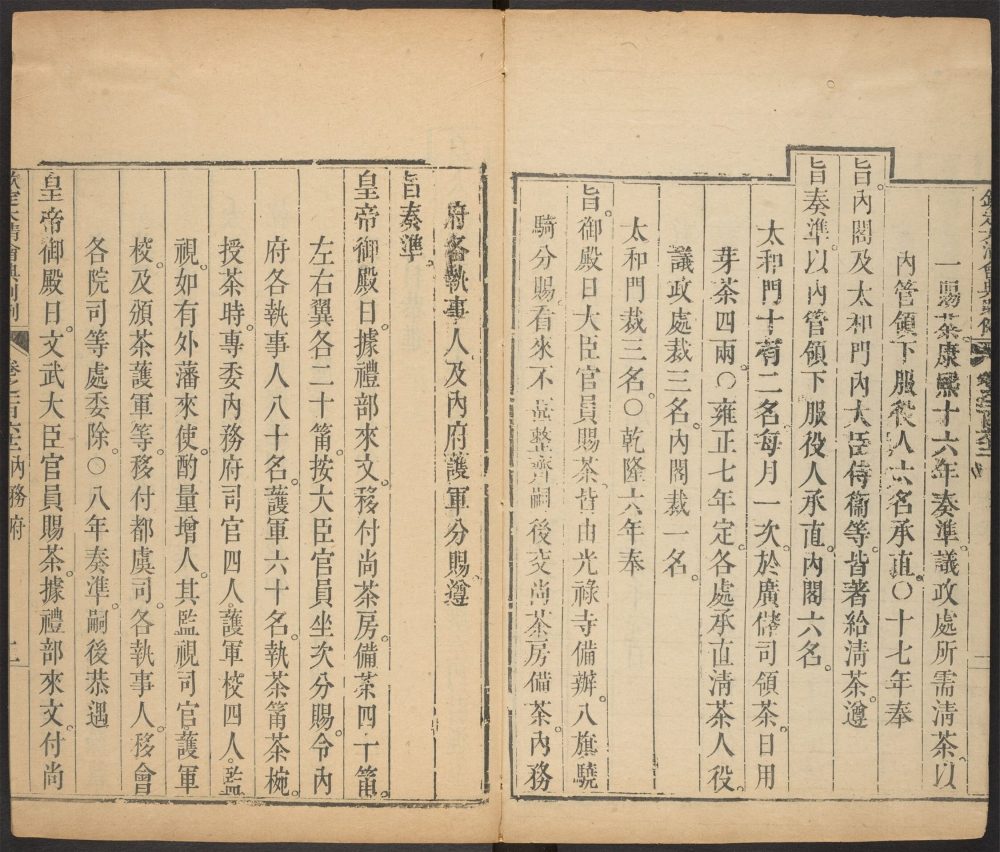 一賜茶康熙十六年奏準議政處所需清茶以
內管領下服役人六名承直。○十七年奉
旨。內閣及太和門內大臣侍衞等。皆著給清茶。遵
旨奏準。以內管領下服役人承直。內閣六名。
太和門十有二名。每月一次。於廣儲司領茶。日用
芽茶四兩。○雍正七年定。各處承直清茶人役。
議政處裁三名。內閣裁一名。
太和門裁三名。○乾隆六年奉
旨。御殿日大臣官員賜茶。皆由光祿寺備辦。八旗驍
騎分賜。看來不甚整齊。嗣後交尚茶房備茶。內務
府各執事人。及內府護軍分賜。遵
旨奏準。
皇帝御殿日。據禮部來文。移付尚茶房。備茶四十筩
左右翼各二十筩。按大臣官員坐次分賜。令內
府各執事人八十名。護軍六十名。執茶筩茶椀。
授茶時。專委內務府司官四人。護軍校四人。監
視。如有外藩來使。酌量增人。其監視司官護軍
校。及頒茶護軍等。移付都虞司。各執事人。移會
各院司等處委除。○八年奏準。嗣後恭遇
皇帝御殿日。文武大臣官員賜茶。據禮部來文。付尚
內務府